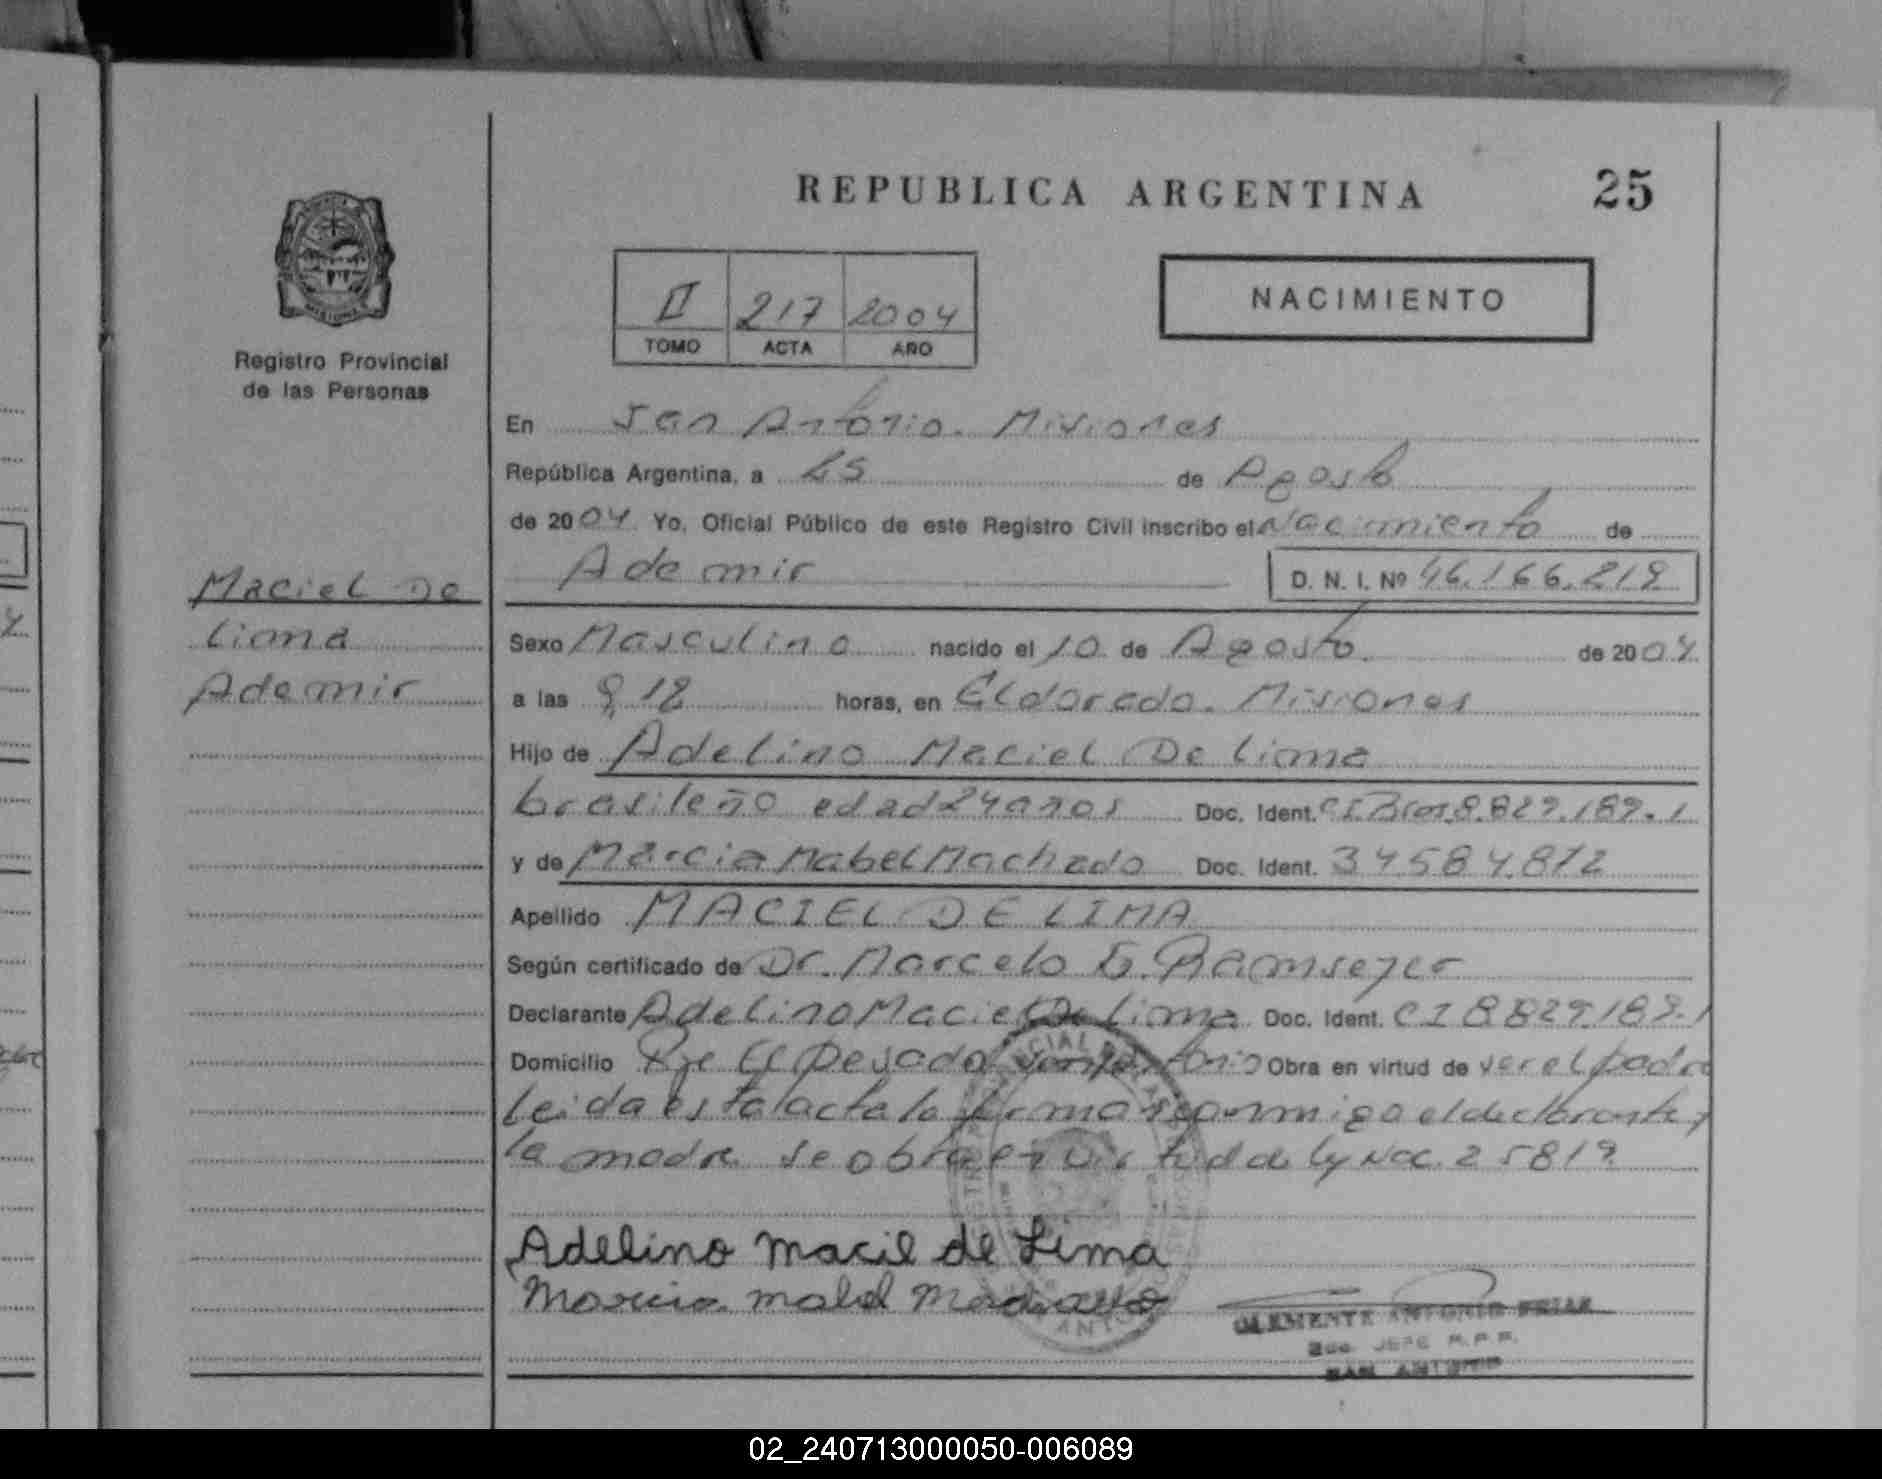 REPUBLICA ARGENTINA 25
NACIMIENTO
II 217 2004
TOMO ACTA AÑO
Registro Provincial
de las Personas
En San Antonio. Misiones
República Argentina, a 25 de Agosto
de 2004 Yo, Oficial Público de este Registro Civil inscribo el Nacimiento de
Ademir D. N. I. Nº 46.166.219
Maciel De
Lima
Ademir
Sexo Masculino nacido el 10 de Agosto de 2004
a las 9,18 horas, en Eldorado. Misiones
Hijo de Adelino Maciel De Lima
brasileño edad 24 años Doc. Ident. CI Bras. 8.829.189.1
y de Marcia Mabel Machado Doc. Ident. 34584872
Apellido MACIEL DE LIMA
Según certificado de Dr. Marcelo G. Ramseyer
Declarante Adelino Maciel De Lima Doc. Ident. CI 8829.189.1
Domicilio El Pesado San Antonio Obra en virtud de ser el padre
Leida esta acta la firma conmigo el declarante y
la madre se obra en virtud de Ley Nac. 25819
Adelino Macil de Lima
Marcia Mabel Machado
CLEMENTE ANTONIO
2do. JEFE R.P.P.
SAN ANTONIO
02_240713000050-006089